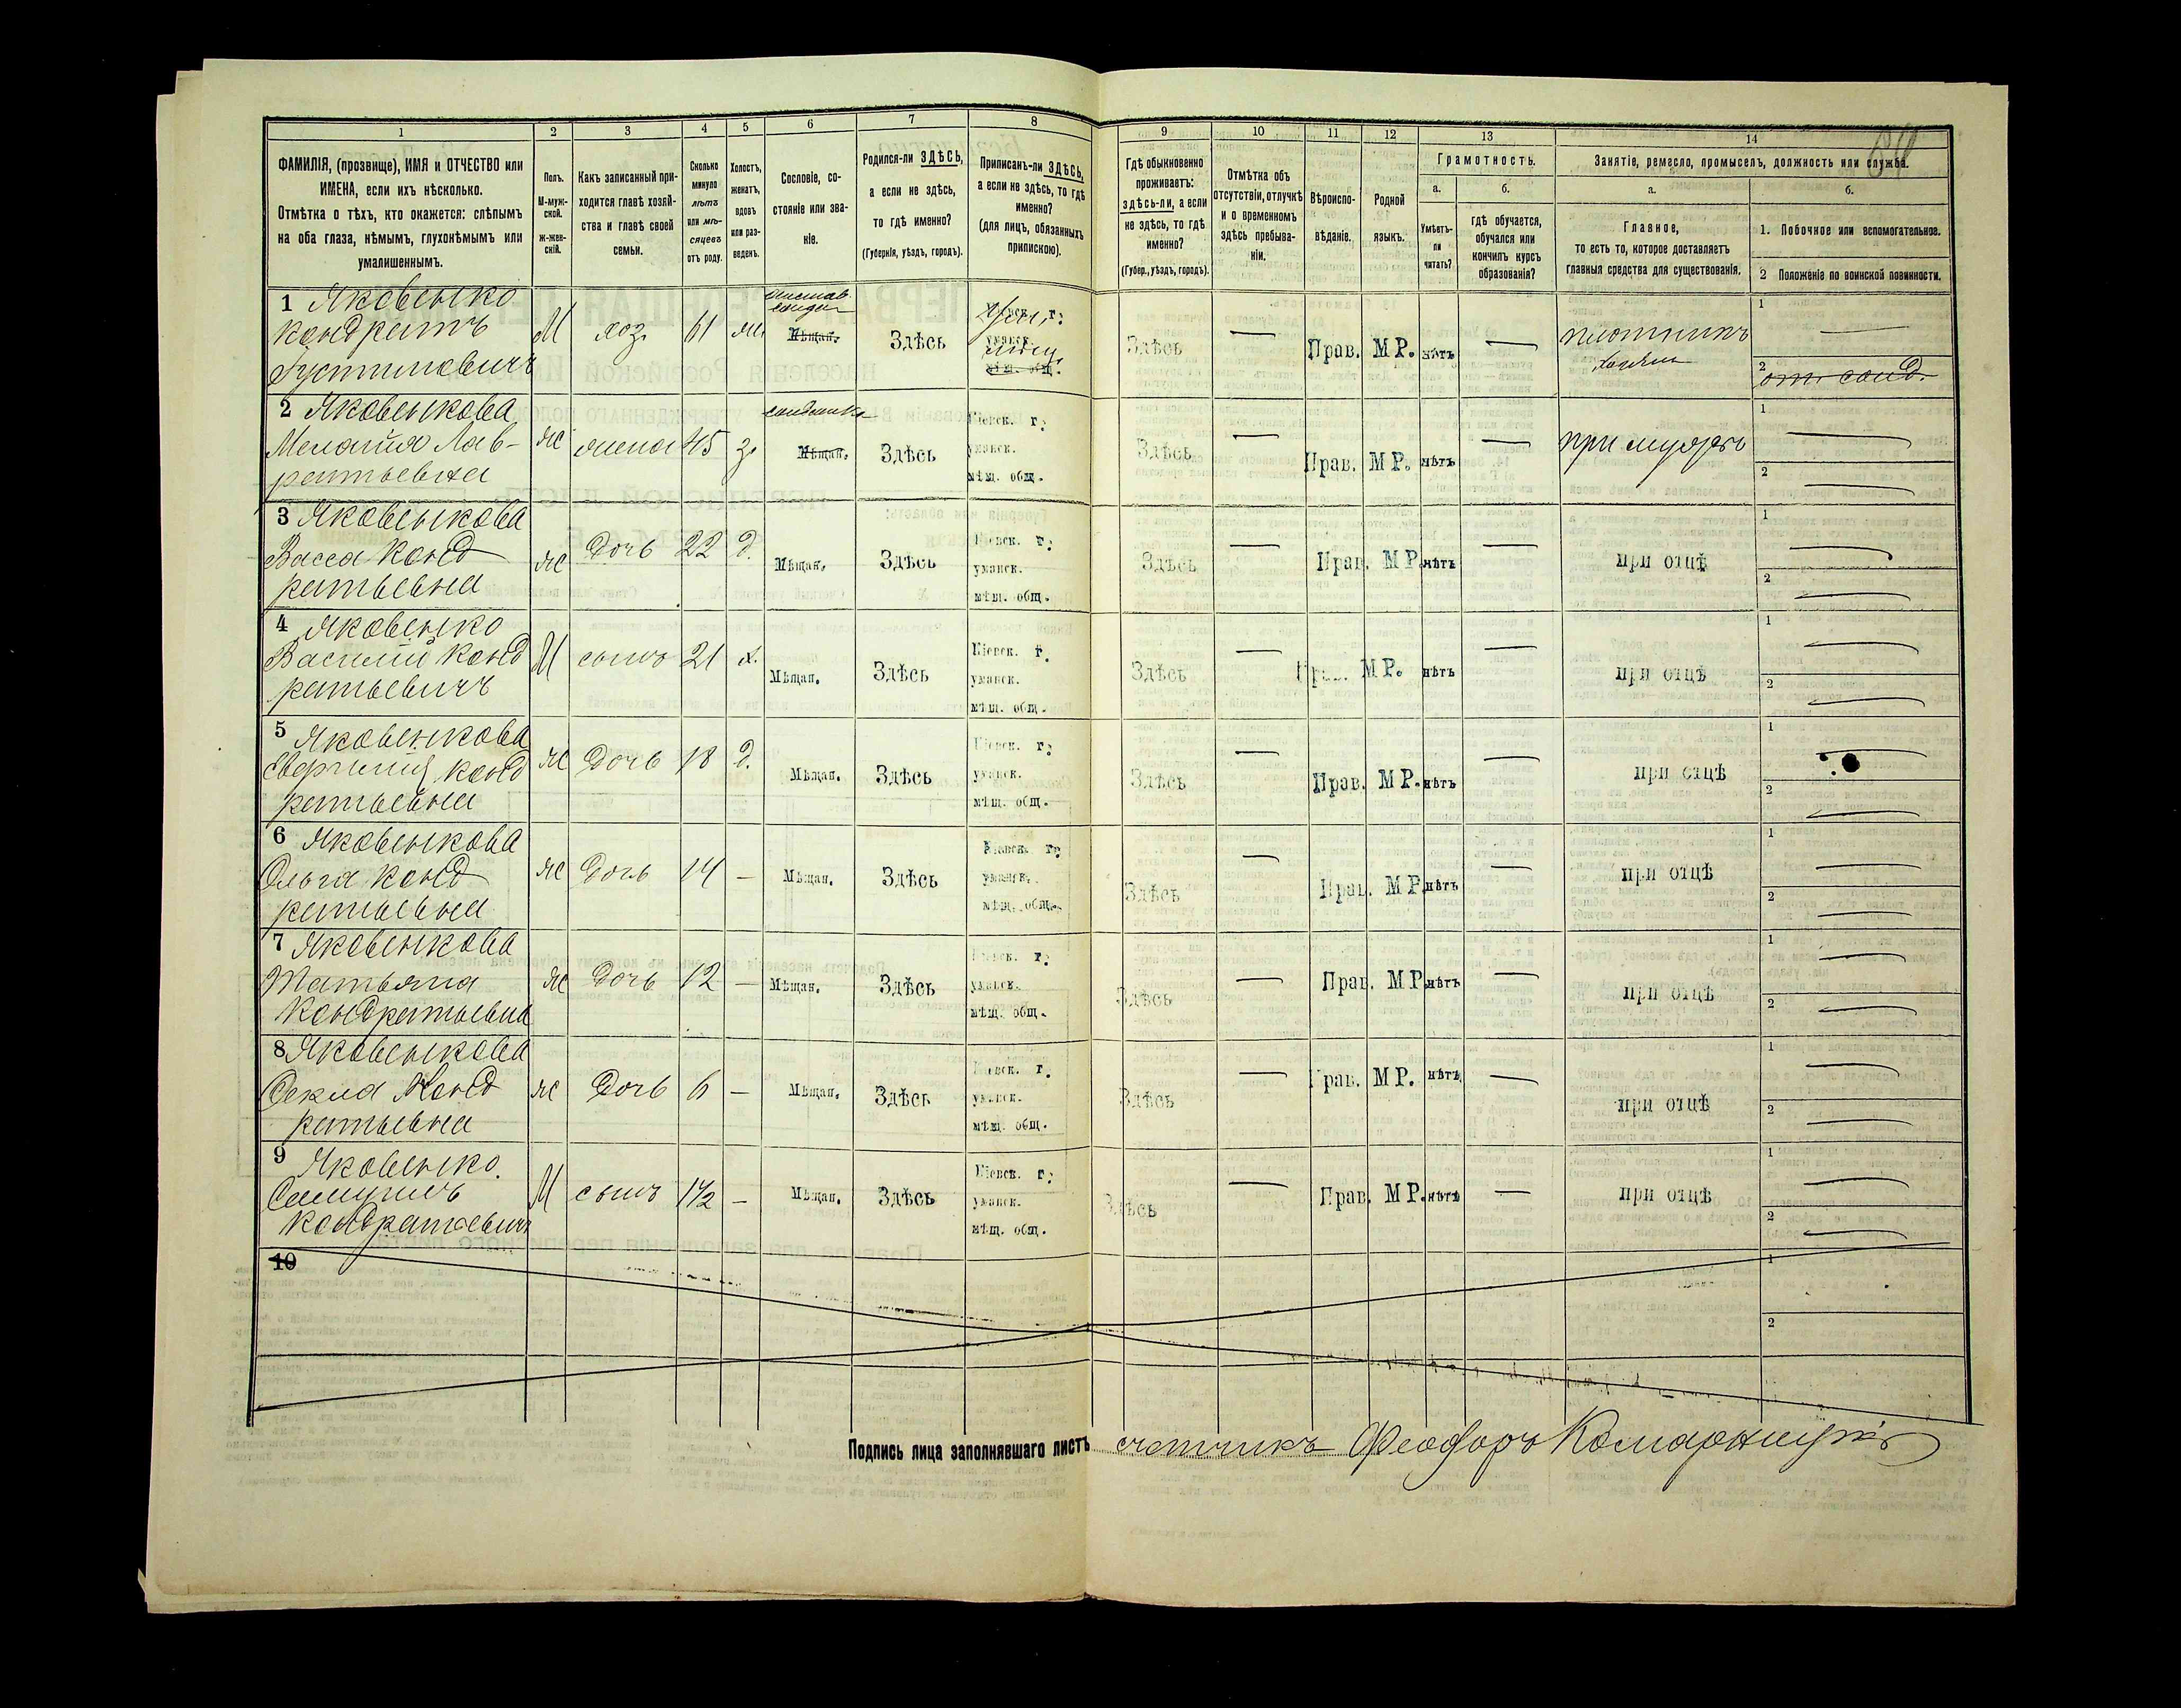 1 2 3 4 5 6 7 8 9 10 11 12 13 14
ФАМИЛІЯ, (прозвище), ИМЯ и ОТЧЕСТВО или
ИМЕНА, если ихъ нѣсколько.
Отмѣтка о тѣхъ, кто окажется: слѣпымъ
на оба глаза, нѣмымъ, глухонѣмымъ или
умалишеннымъ.
Полъ.
М-муж-
ской.
ж-жен-
скій.
Какъ записанный при-
ходится главѣ хозяй-
ства и главѣ своей
семьи.
Сколько
минуло
лѣтъ
или мѣ-
сяцевъ
отъ роду.
Холостъ,
женатъ,
вдовъ
или раз-
веденъ.
Сословіе, со-
стояніе или зва-
ніе.
Родился-ли ЗДѢСЬ,
а если не здѣсь,
то гдѣ именно?
(Губернія, уѣздъ, городъ).
Приписанъ-ли ЗДѢСЬ,
а если не здѣсь, то гдѣ
именно?
(для лицъ, обязанныхъ
припискою).
Гдѣ обыкновенно
проживаетъ:
здѣсь-ли, а если
не здѣсь, то гдѣ
именно?
(Губер., уѣздъ, городъ).
Отмѣтка объ
отсутствіи, отлучкѣ
и о временномъ
здѣсь пребыва-
ніи.
Вѣроиспо-
вѣданіе.
Родной
языкъ.
Грамотность.
а.
Умѣетъ-
ли
читать?
б.
гдѣ обучается,
обучался или
кончилъ курсъ
образованія?
Занятіе, ремесло, промыселъ, должность или служба.
а.
Главное,
то есть то, которое доставляетъ
главныя средства для существованія.
б.
1. Побочное или вспомогательное.
2 Положеніе по воинской повинности.
1 Яковенко
Кондратъ
Іустиновичъ
М хоз. 61 Мѣщан. Здѣсь
Здѣсь — Прав. М Р. нѣтъ — плотникъ
хозяин
1 —
2 отст. солд.
2 Яковенкова
Меланія Лав-
рентьевна
Ж жена 45 з. солдатка Мѣщан. Здѣсь Кіевск. г.
уманск.
мѣщ. общ.
Здѣсь — Прав. М Р. нѣтъ — при мужѣ
1 —
2 —
3 Яковенкова
Васса Конд
ратьевна
Ж дочь 22 д. Мѣщан. Здѣсь Кіевск. г.
уманск.
мѣщ. общ.
Здѣсь — Прав. М Р. нѣтъ — при отцѣ
1 —
2 —
4 Яковенко
Василій Конд
ратьевичъ
М сынъ 21 х. Мѣщан. Здѣсь Кіевск. г.
уманск.
мѣщ. общ.
Здѣсь — Прав. М Р. нѣтъ — при отцѣ
1 —
2 —
5 Яковенкова
Конд
ратьевна
Ж дочь 18 д. Мѣщан. Здѣсь Кіевск. г.
уманск.
мѣщ. общ.
Здѣсь — Прав. М Р. нѣтъ — при отцѣ
1 —
2 —
6 Яковенкова
Ольга Конд
ратьевна
Ж дочь 14 — Мѣщан. Здѣсь Кіевск. г.
уманск.
мѣщ. общ.
Здѣсь — Прав. М Р. нѣтъ — при отцѣ
1 —
2 —
7 Яковенкова
Татьяна
Кондратьевна
Ж дочь 12 — Мѣщан. Здѣсь Кіевск. г.
уманск.
мѣщ. общ.
Здѣсь — Прав. М Р. нѣтъ — при отцѣ
1 —
2 —
8 Яковенкова
Өекла Конд
ратьевна
Ж дочь 6 — Мѣщан. Здѣсь Кіевск. г.
уманск.
мѣщ. общ.
Здѣсь — Прав. М Р. нѣтъ — при отцѣ
1 —
2 —
9 Яковенко
Кондратьевичъ
М сынъ 1½ — Мѣщан. Здѣсь Кіевск. г.
уманск.
мѣщ. общ.
Здѣсь — Прав. М Р. нѣтъ — при отцѣ
1 —
2 —
10
1
2
Подпись лица заполнявшаго листъ счетчикъ Феодоръ Комарницкій